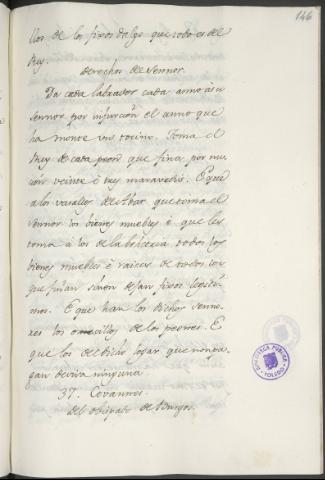 146
llos de los fijos dalgo que todo es del
Rey.
Derechos de Sennor.
Da cada labrador cada anno à su
sennor por infurcion el anno que
ha monte un tocino. Toma el
Rey de cada que fina, por nu-
cion veinte è tres maravedis. E que
a los vasallos del Abat que toma el
sennor los bienes muebles è que les
toma à los de la todos los
bienes muebles è raices de todos los
que finan sinon dejan fijos legiti-
mos. E que han los dichos senno-
res los omecillos de los peones. E
que los del dicho logar que non pa-
gan devisa ninguna
37. Covannes.
del obispado de Burgos.
BIBLIOTECA PUBLICA
TOLEDO